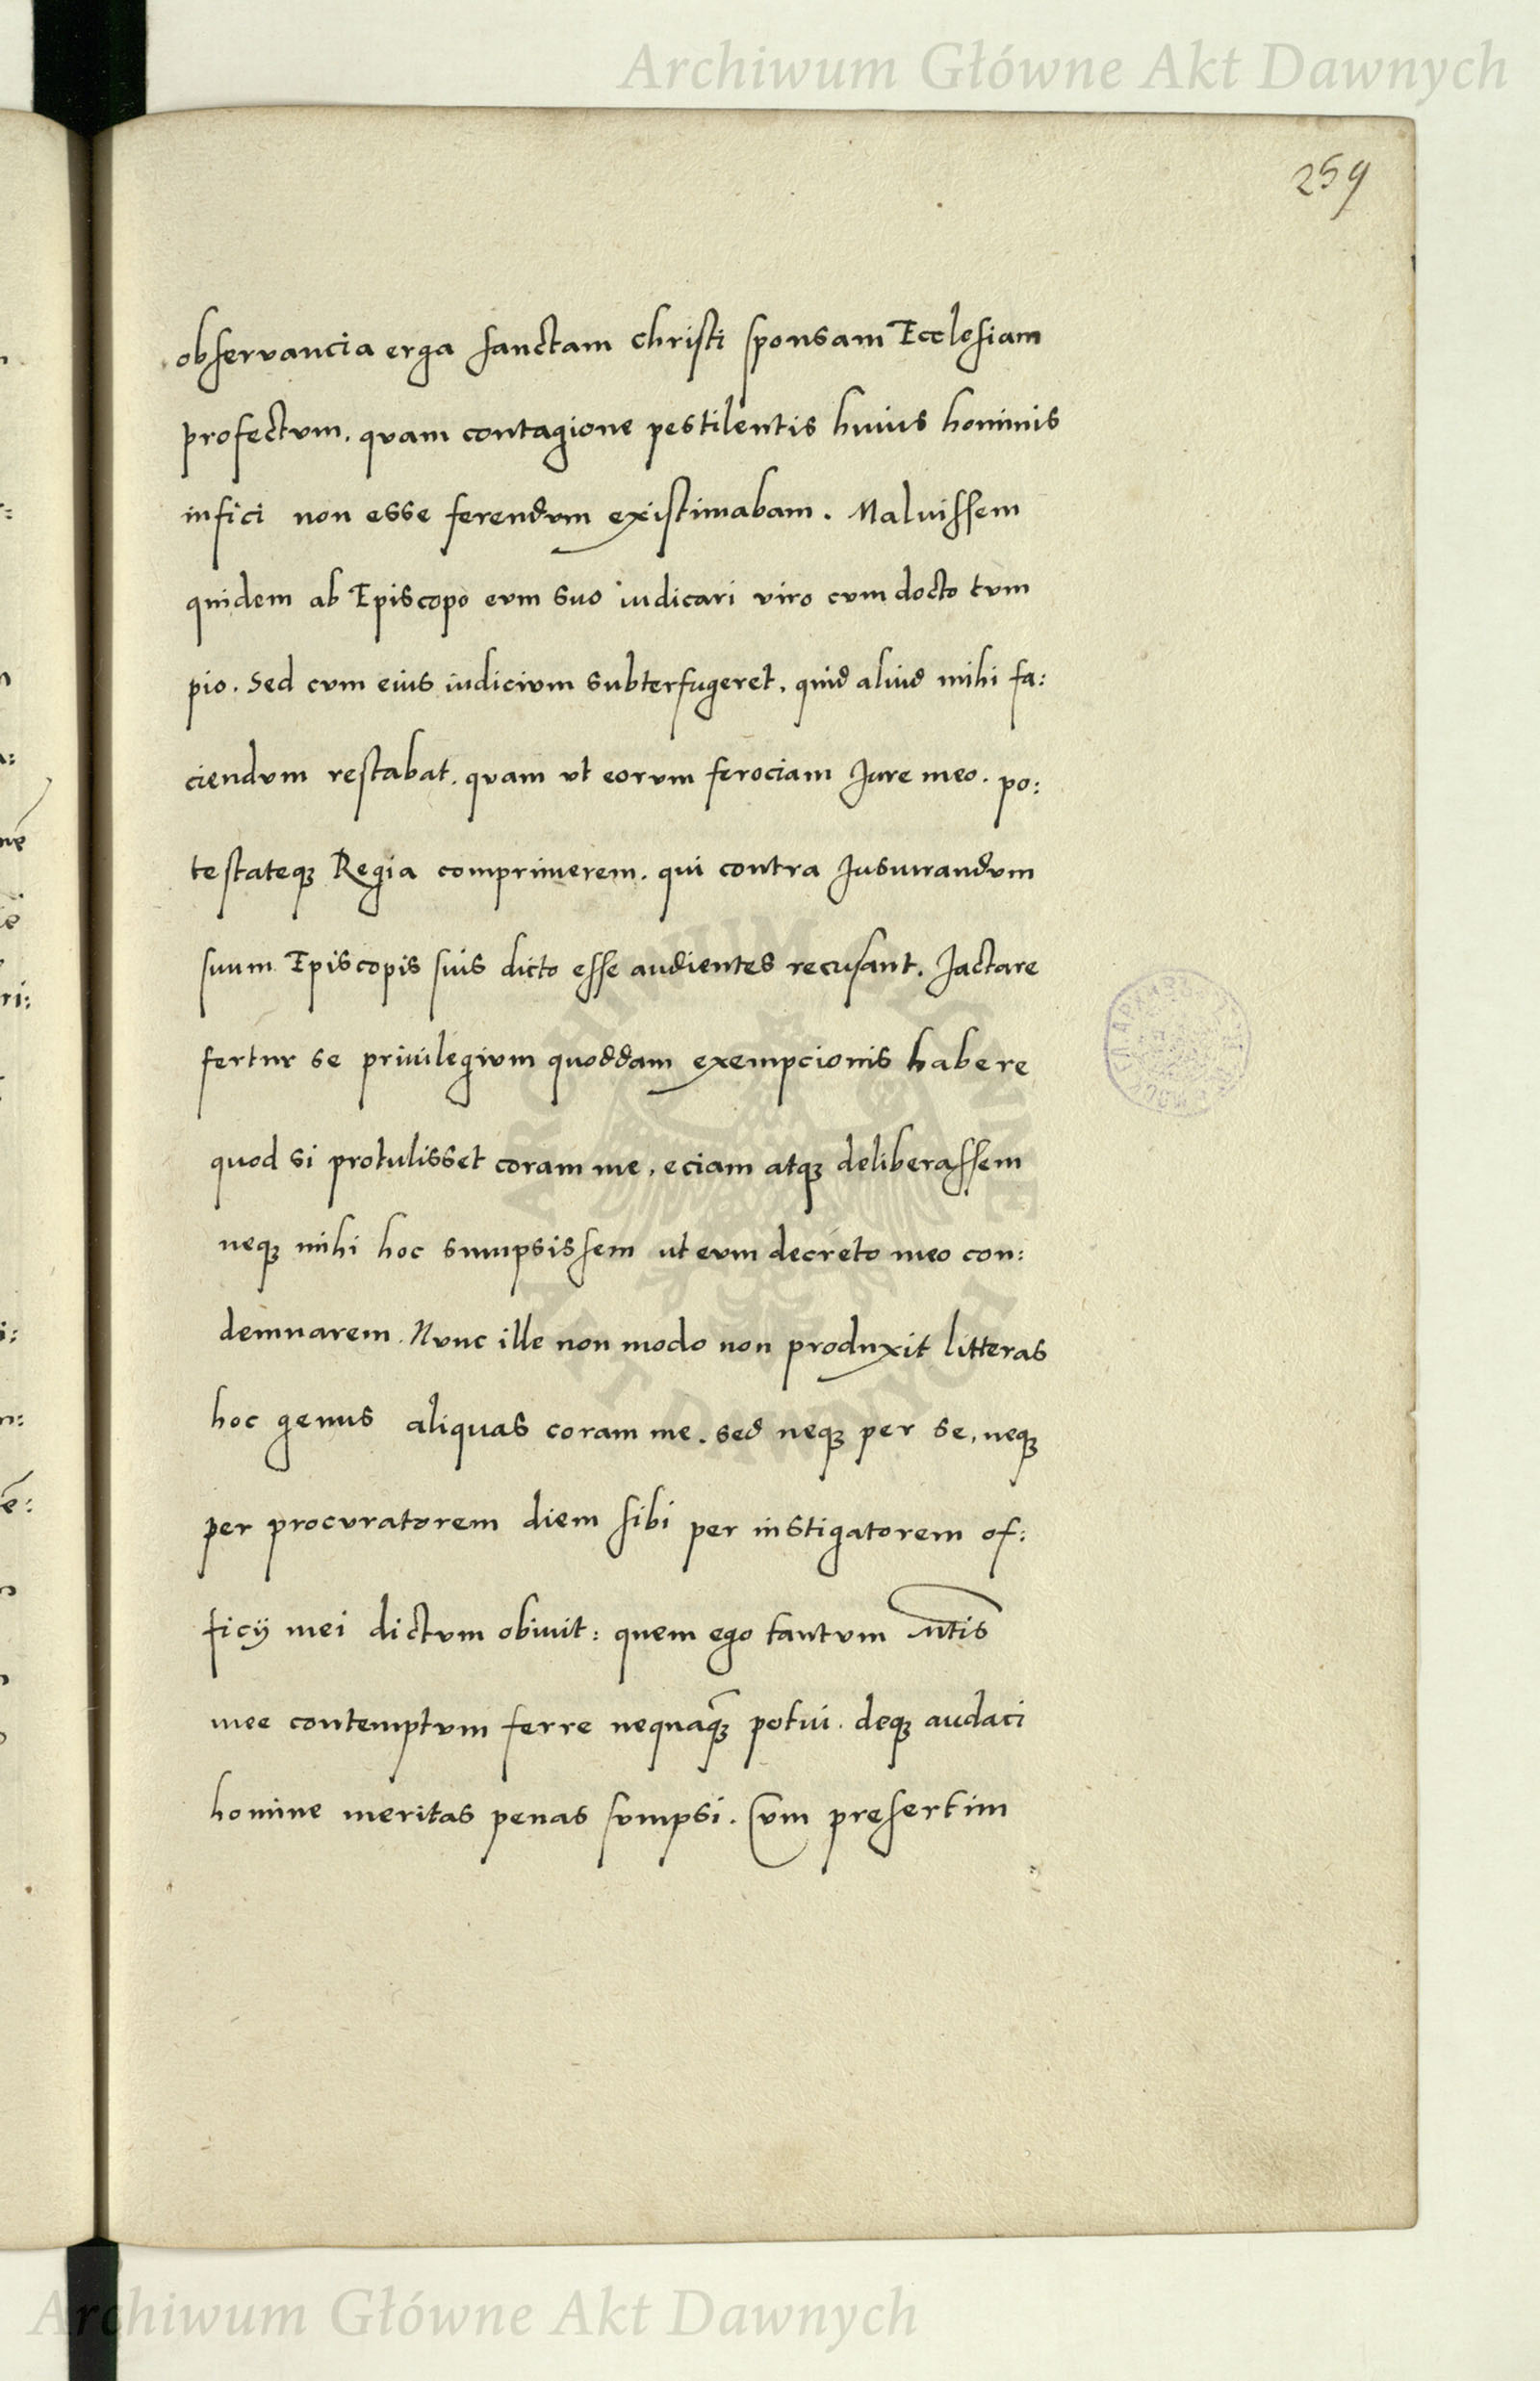 Archiwum Główne Akt Dawnych
259
observancia erga sanctam christi sponsam Ecclesiam
profectum. quam contagione pestilentis huius hominis
infici non esse ferendum existimabam. Maluissem
quidem ab Episcopo eum suo iudicari viro cum docto tum
pio. Sed cum eius iudicium subterfugeret. quid aliud mihi fa:
ciendum restabat. quam ut eorum ferociam Jure meo. po:
testateqꝫ Regia comprimerem. qui contra Jusiurandum
suum Episcopis suis dicto esse audientes recusant. Jactare
fertur se priuilegium quoddam exempcionis habere
quod si protulisset coram me. eciam atqꝫ deliberassem
neqꝫ mihi hoc sumpsissem ut eum decreto meo con:
demnarem. Nunc ille non modo non produxit litteras
hoc genus aliquas coram me. sed neqꝫ per se, neqꝫ
per procuratorem diem sibi per instigatorem of:
ficÿ mei dictum obiuit: quem ego tantum mtis
mee contemptum ferre nequaqꝫ potui. deqꝫ audaci
homine meritas penas sumpsi. Cum presertim
ARCHIWUM GŁÓWNE
AKT DAWNYCH
Archiwum Główne Akt Dawnych